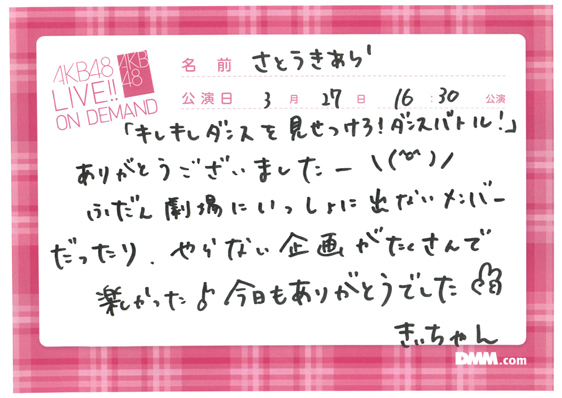 AKB48
LIVE!!
ON DEMAND
AKB
48
名 前 さとうきあら
公演日 3 月 27 日 16 : 30 公演
「キレキレダンスを見せつけろ!ダンスバトル!」
ありがとうございましたー \(^o^)/
ふだん劇場にいっしょに出ないメンバー
だったり、やらない企画がたくさんで
楽しかった♪今日もありがとうでした
きぃちゃん
DMM.com